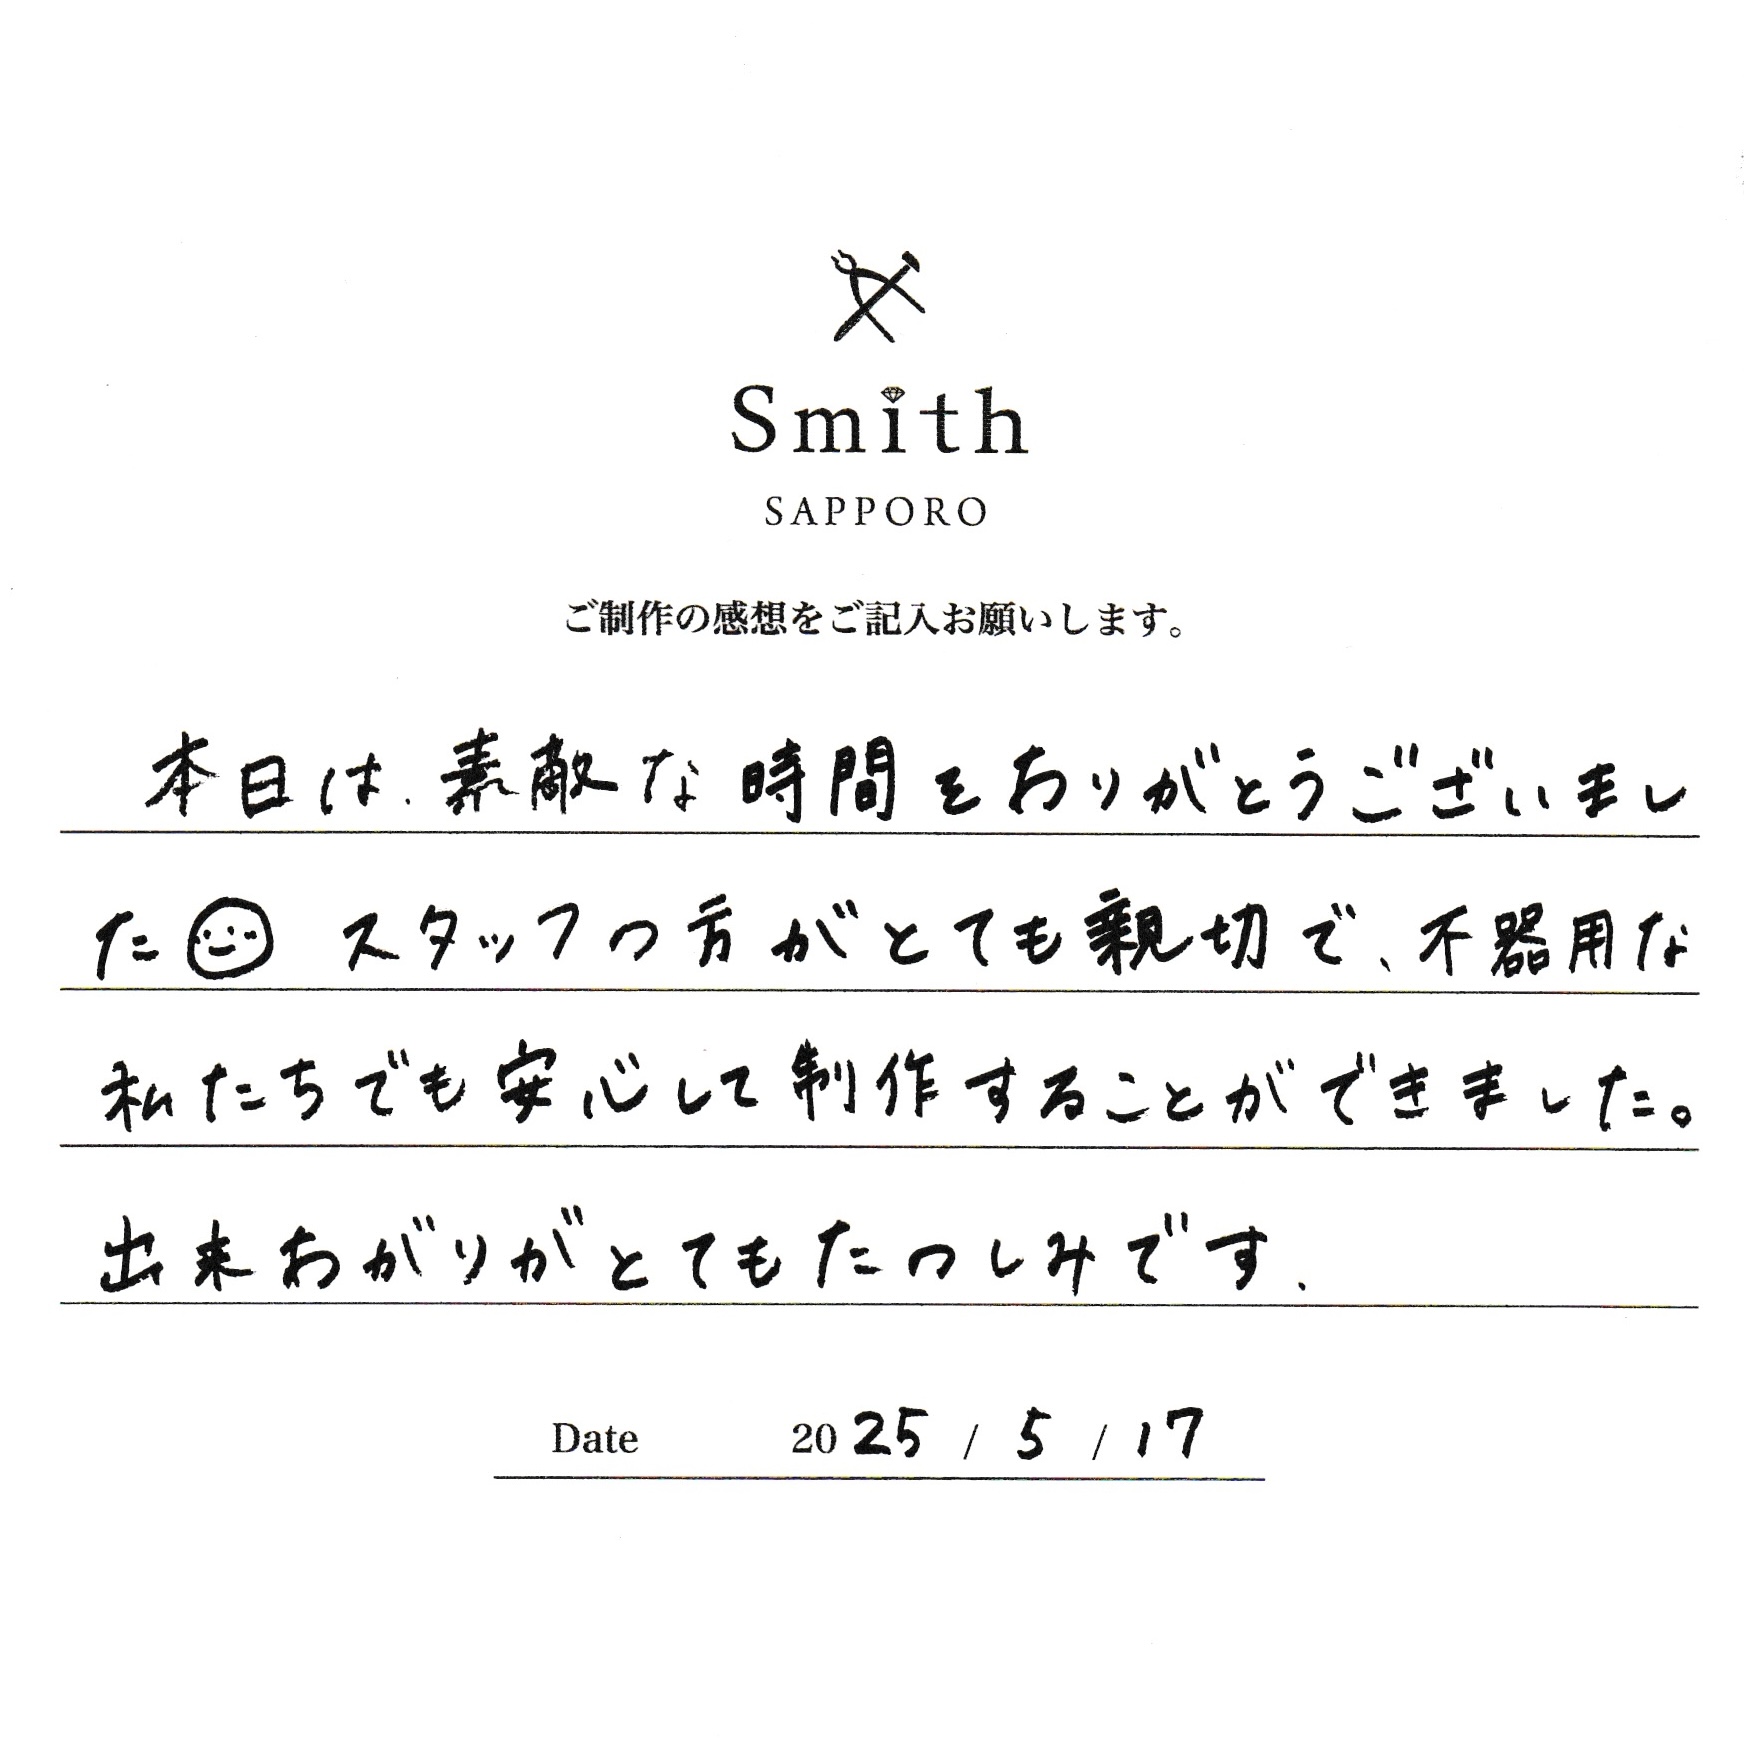 Smith
SAPPORO
ご制作の感想をご記入お願いします。
本日は、素敵な時間をありがとうございまし
た☺ スタッフの方がとても親切で、不器用な
私たちでも安心して制作することができました。
出来あがりがとてもたのしみです。
Date 2025 / 5 / 17